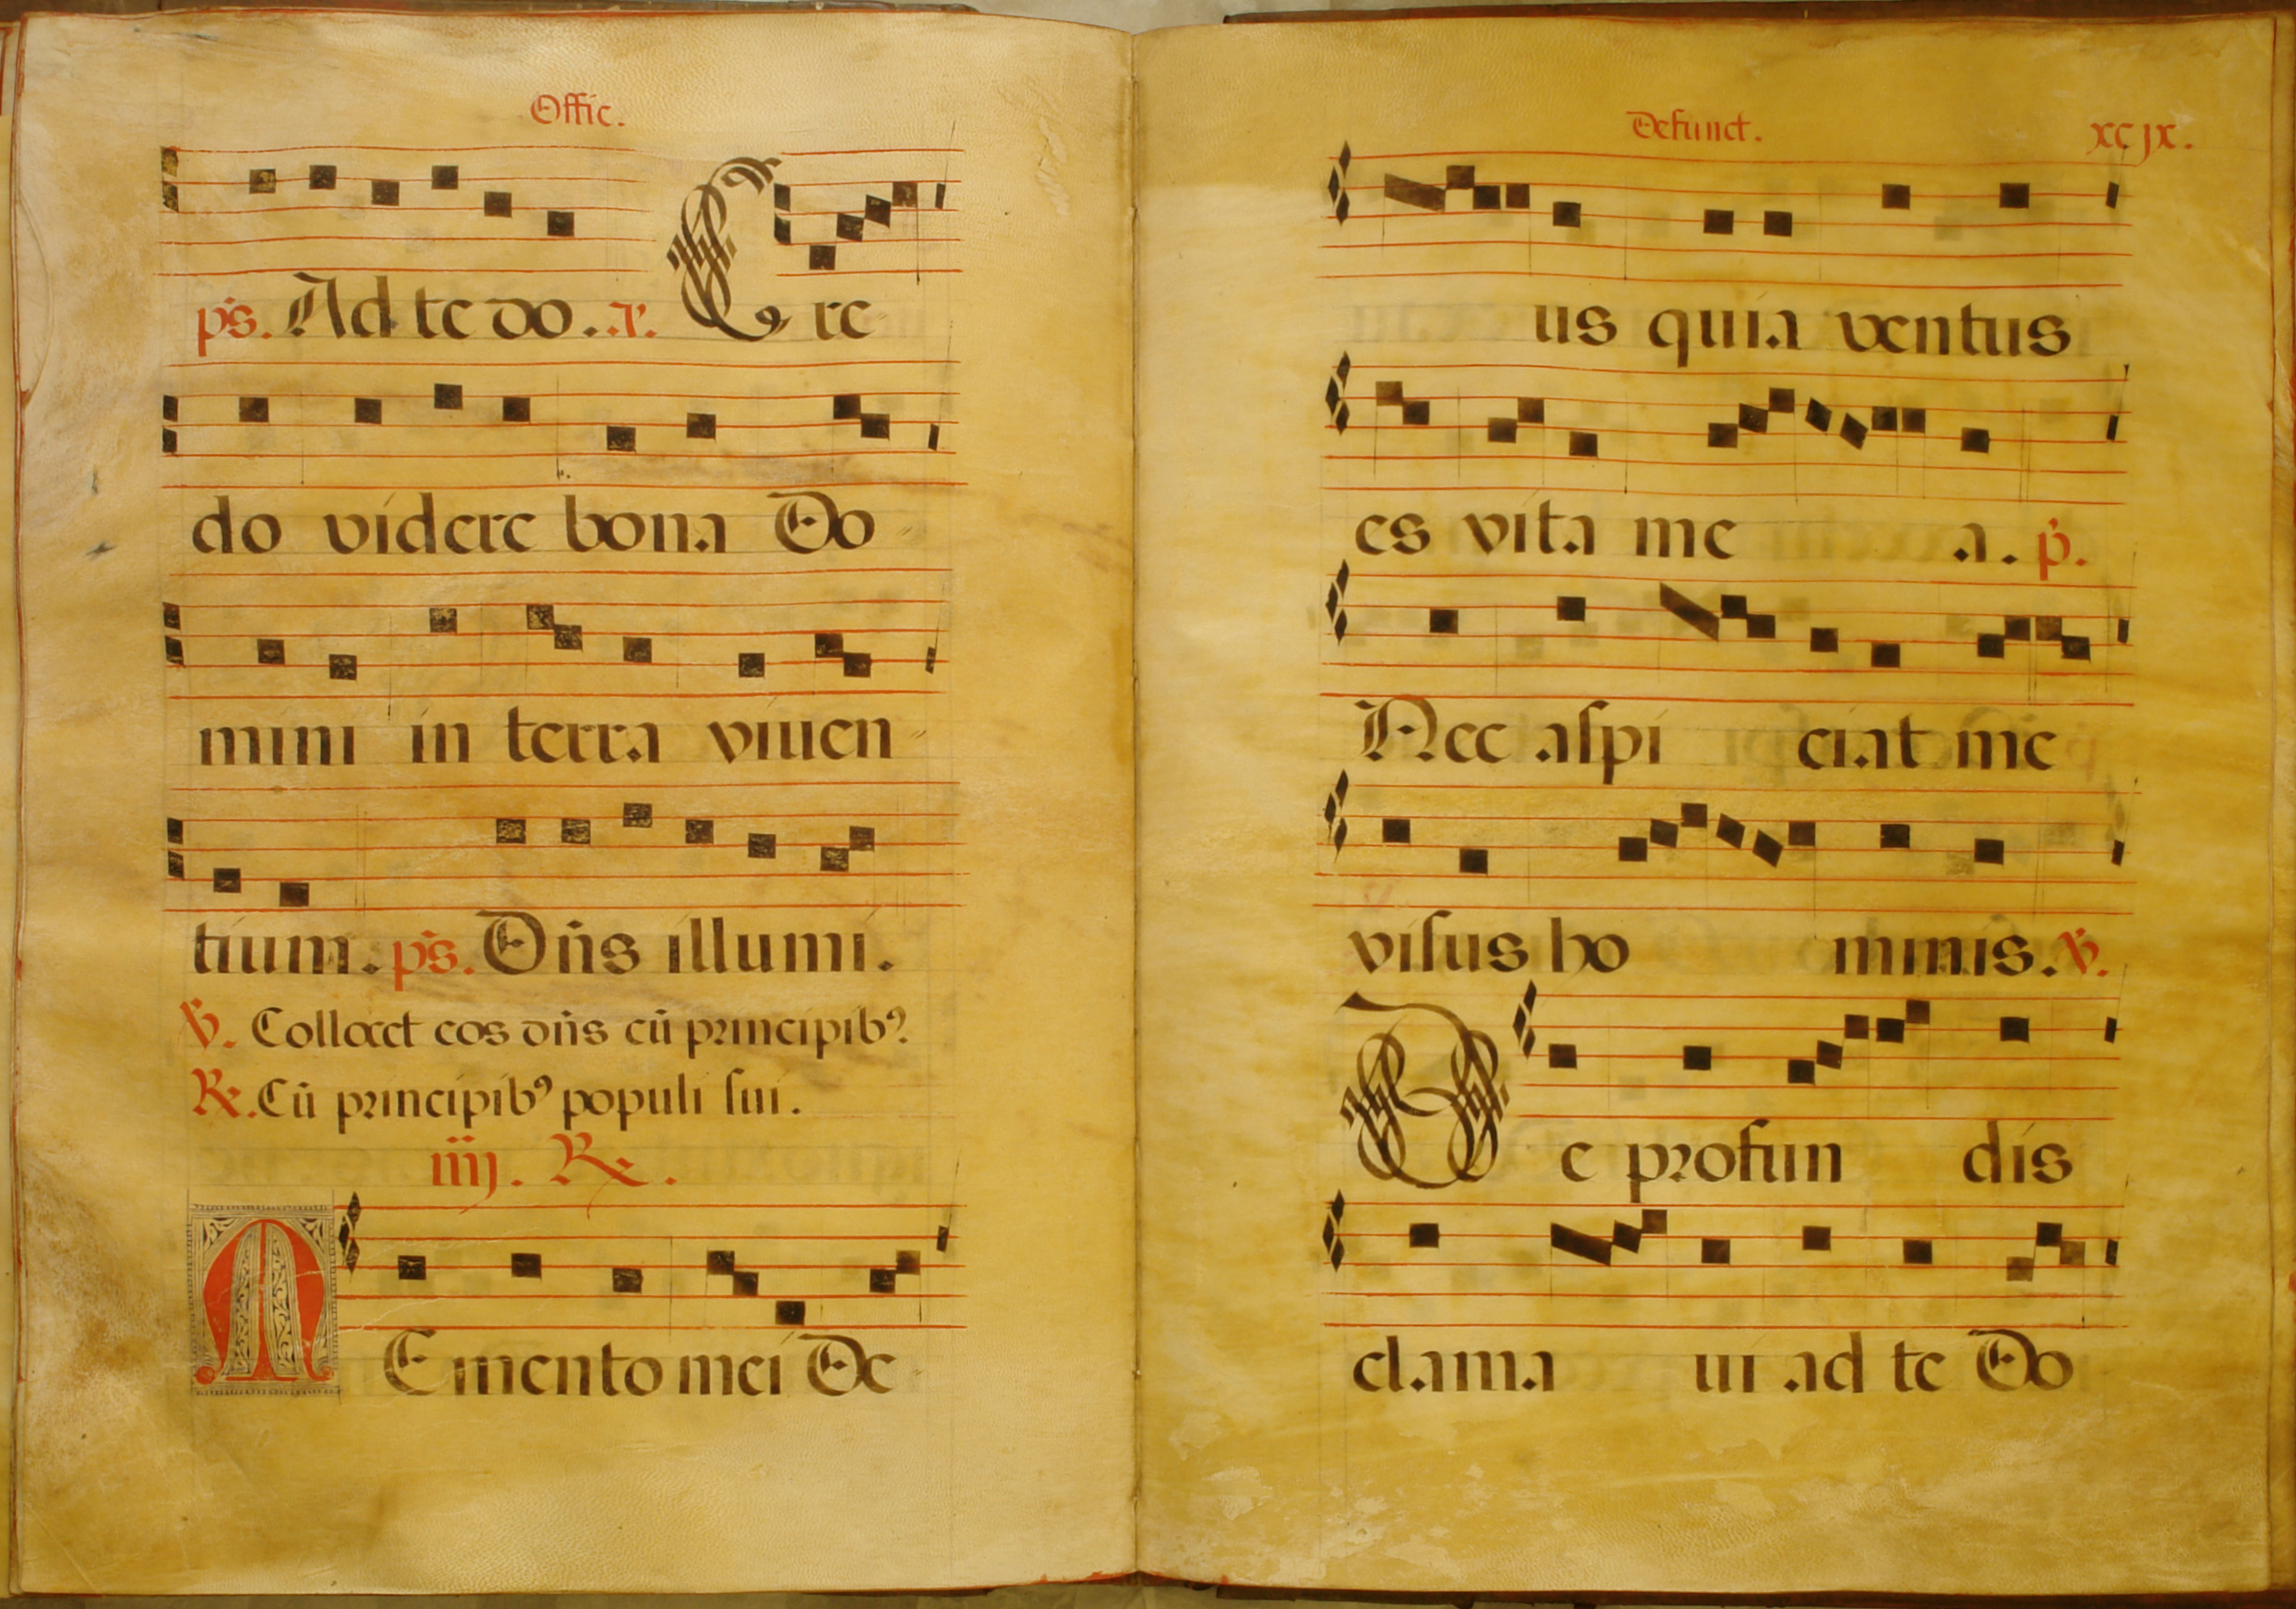 Offic.
ps. Ad te do. a. Cre
do videre bona Do
mini in terra viuen
tium. ps. Dñs illumi.
V. Collocet eos dñs cũ principibꝰ
℟. Cũ principibꝰ populi sui.
iiij. ℟.
MEmento mei De
Defunct. xcjx.
us quia ventus
es vita me a. p.
Nec aſpi ciat me
viſus ho minis. V.
De profun dis
clama ui ad te Do